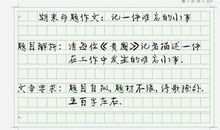 期末命题作文：记一件难忘的小事
题目解析：请每位《贵圈》记者描述一件
在工作中发生的难忘小事。
文章要求：题目自拟，题材不限，诗歌除外，
五百字左右。